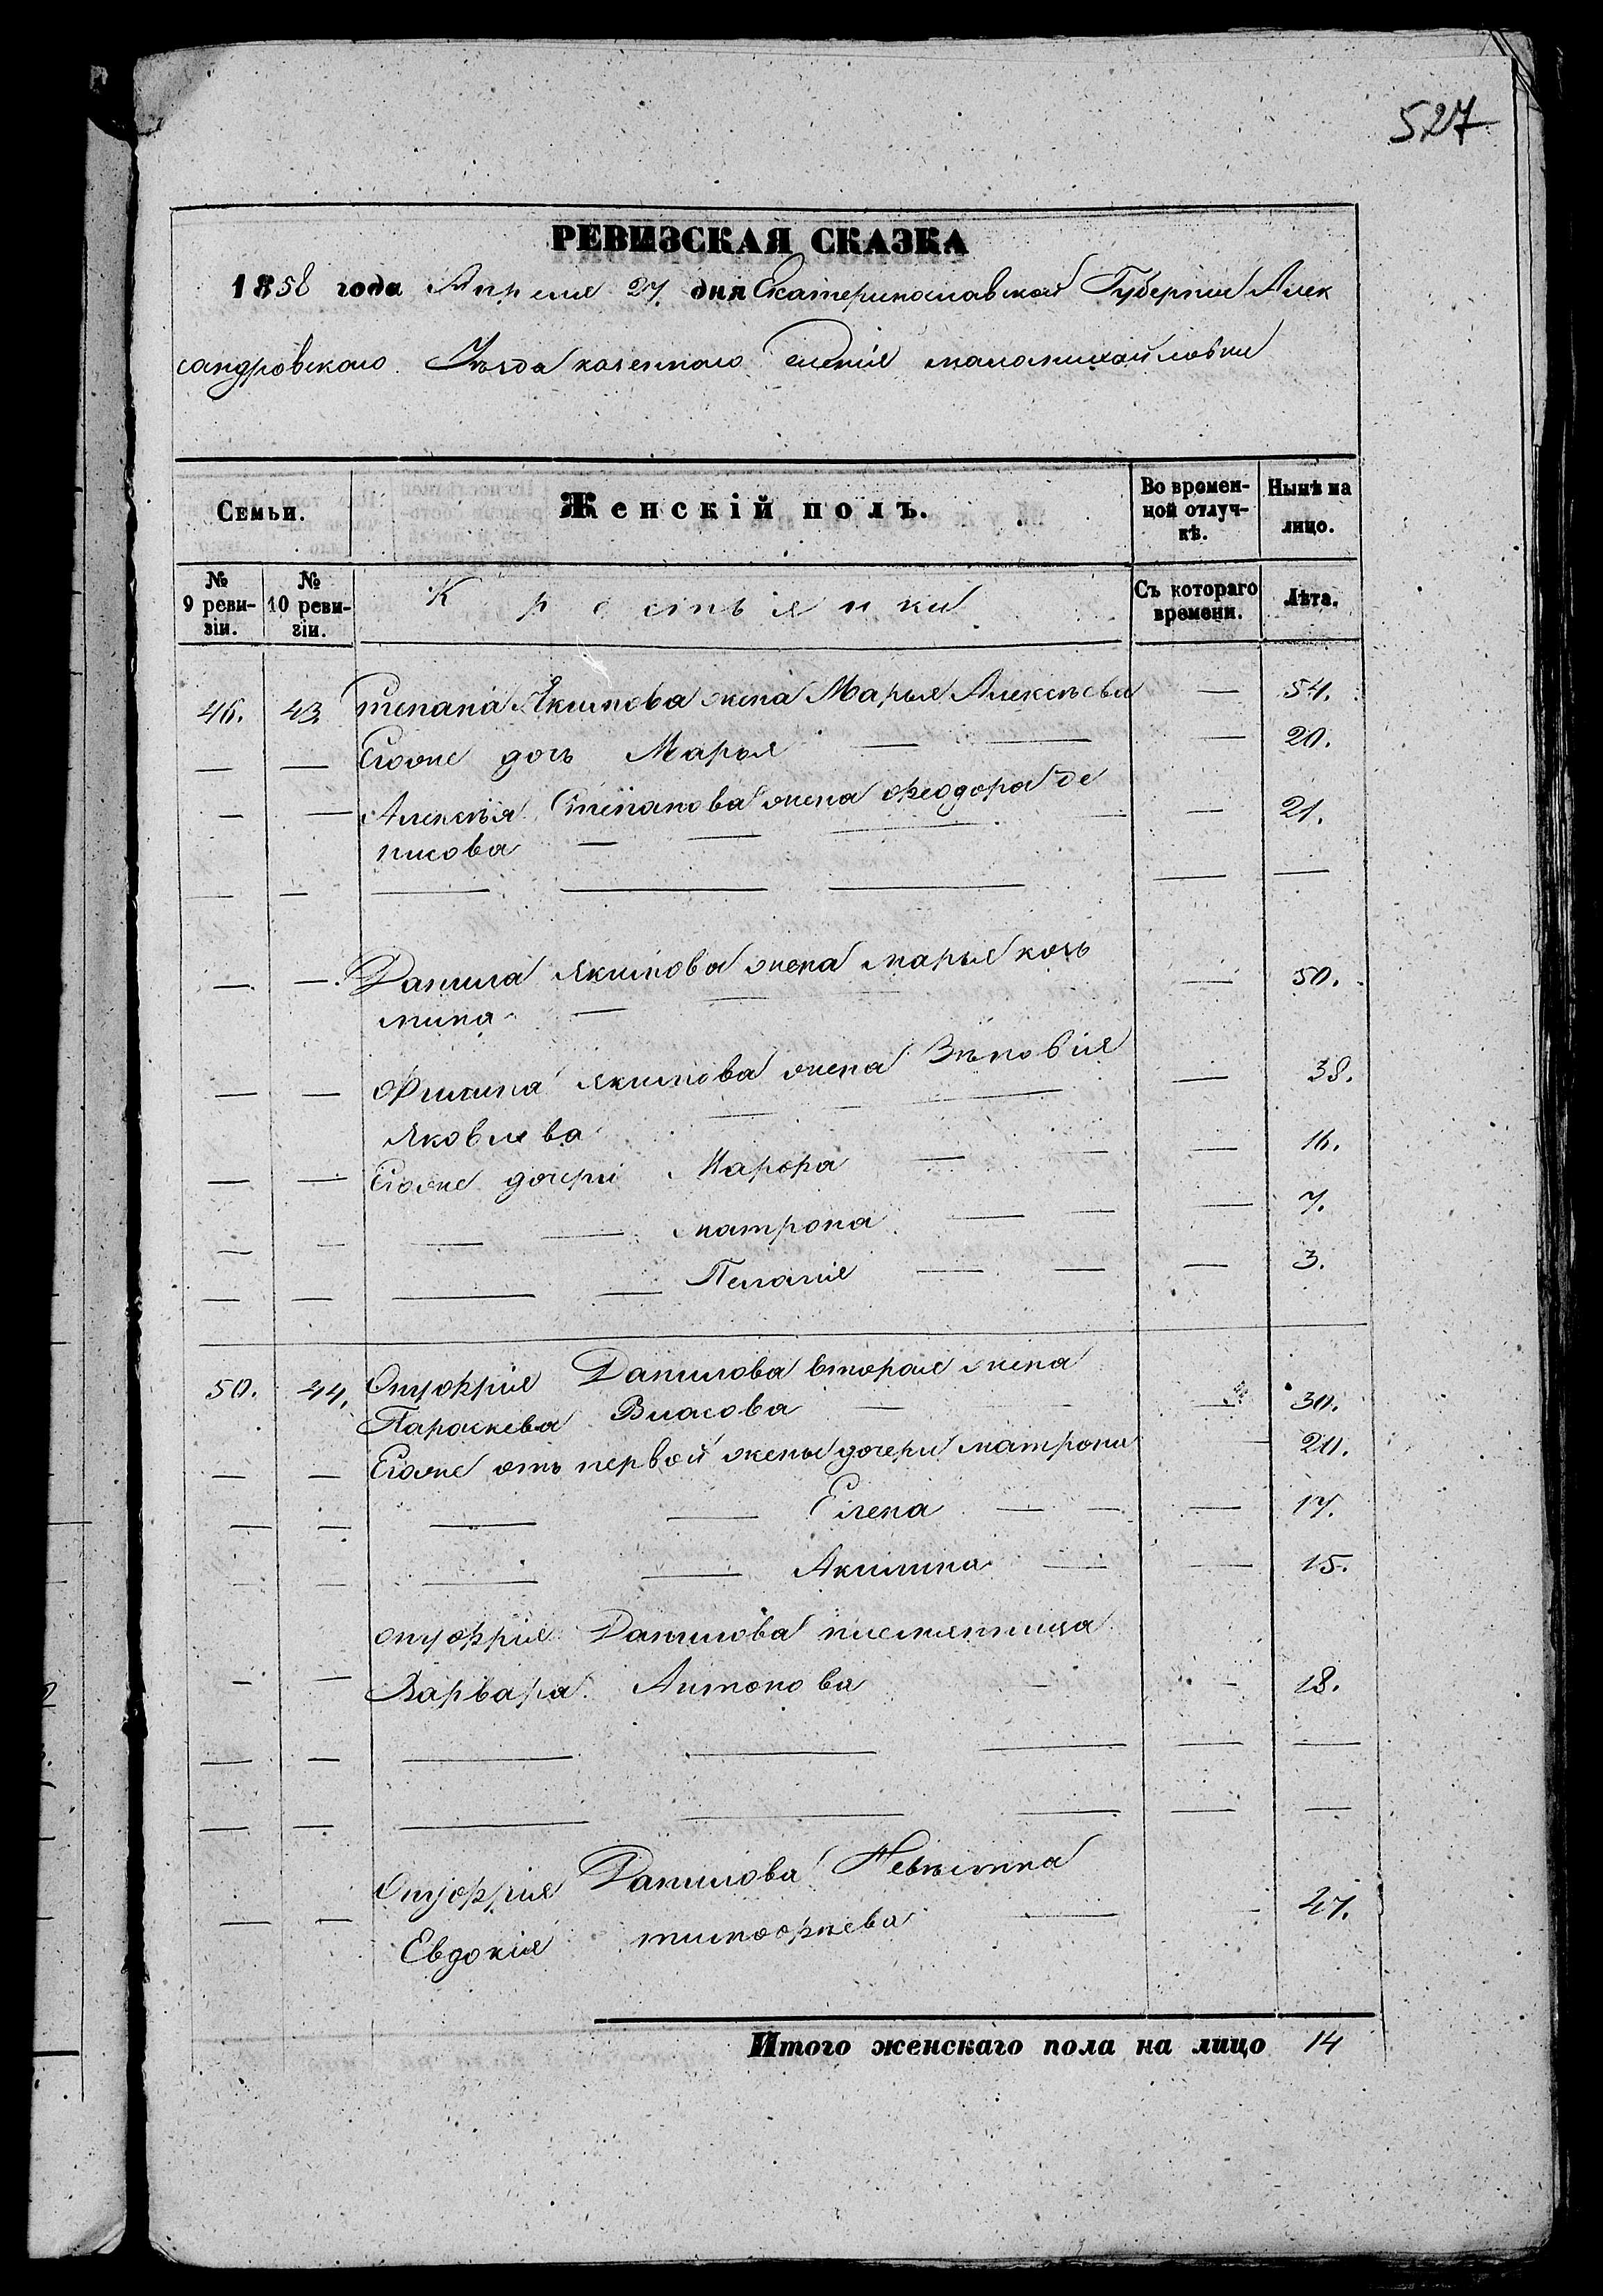 527
РЕВИЗСКАЯ СКАЗКА
1858 года Апреля 27 дня Екатеринославской Губернии Алек
сандровского Уѣзда казенного селенія маломихайловки
Семьи. Женскій полъ. Во времен-ной отлуч-кѣ. Нынѣ на лицо.
№ 9 реви-зіи. № 10 реви-зіи. Крестьянки Съ котораго времени. Лѣта.
46. 43. Степана Якимова жена Марья Алексѣева — 54.
— — Егоже дочь Марья — — — 20.
— — Алексѣя Степанова жена Феодора де — 21.
нисова — — —
— — — — — — —
— — Данила Якимова жена марья козь — 50.
мина — — —
— — Филипа Якимова жена Зѣновія — 38.
Яковлева — — —
— — Егоже дочери Марфа — — — 16.
— — — — матрона — — — 7.
— — — — Пелагія — — — 3.
50. 44. Онуфрія Данилова вторая жена
Параскева Власова — — — 30.
— — Егоже отъ первой жены дочери матрона — 20.
— — — — Елена — — — 17.
— — — — Акилина — — — 15.
Онуфрія Данилова племянница
— — Варвара Антонова — — 18.
— — — — — — —
— — — — — — —
Онуфрія Данилова Невѣстка
— — Евдокія тимофѣева — — 27.
Итого женскаго пола на лицо 14